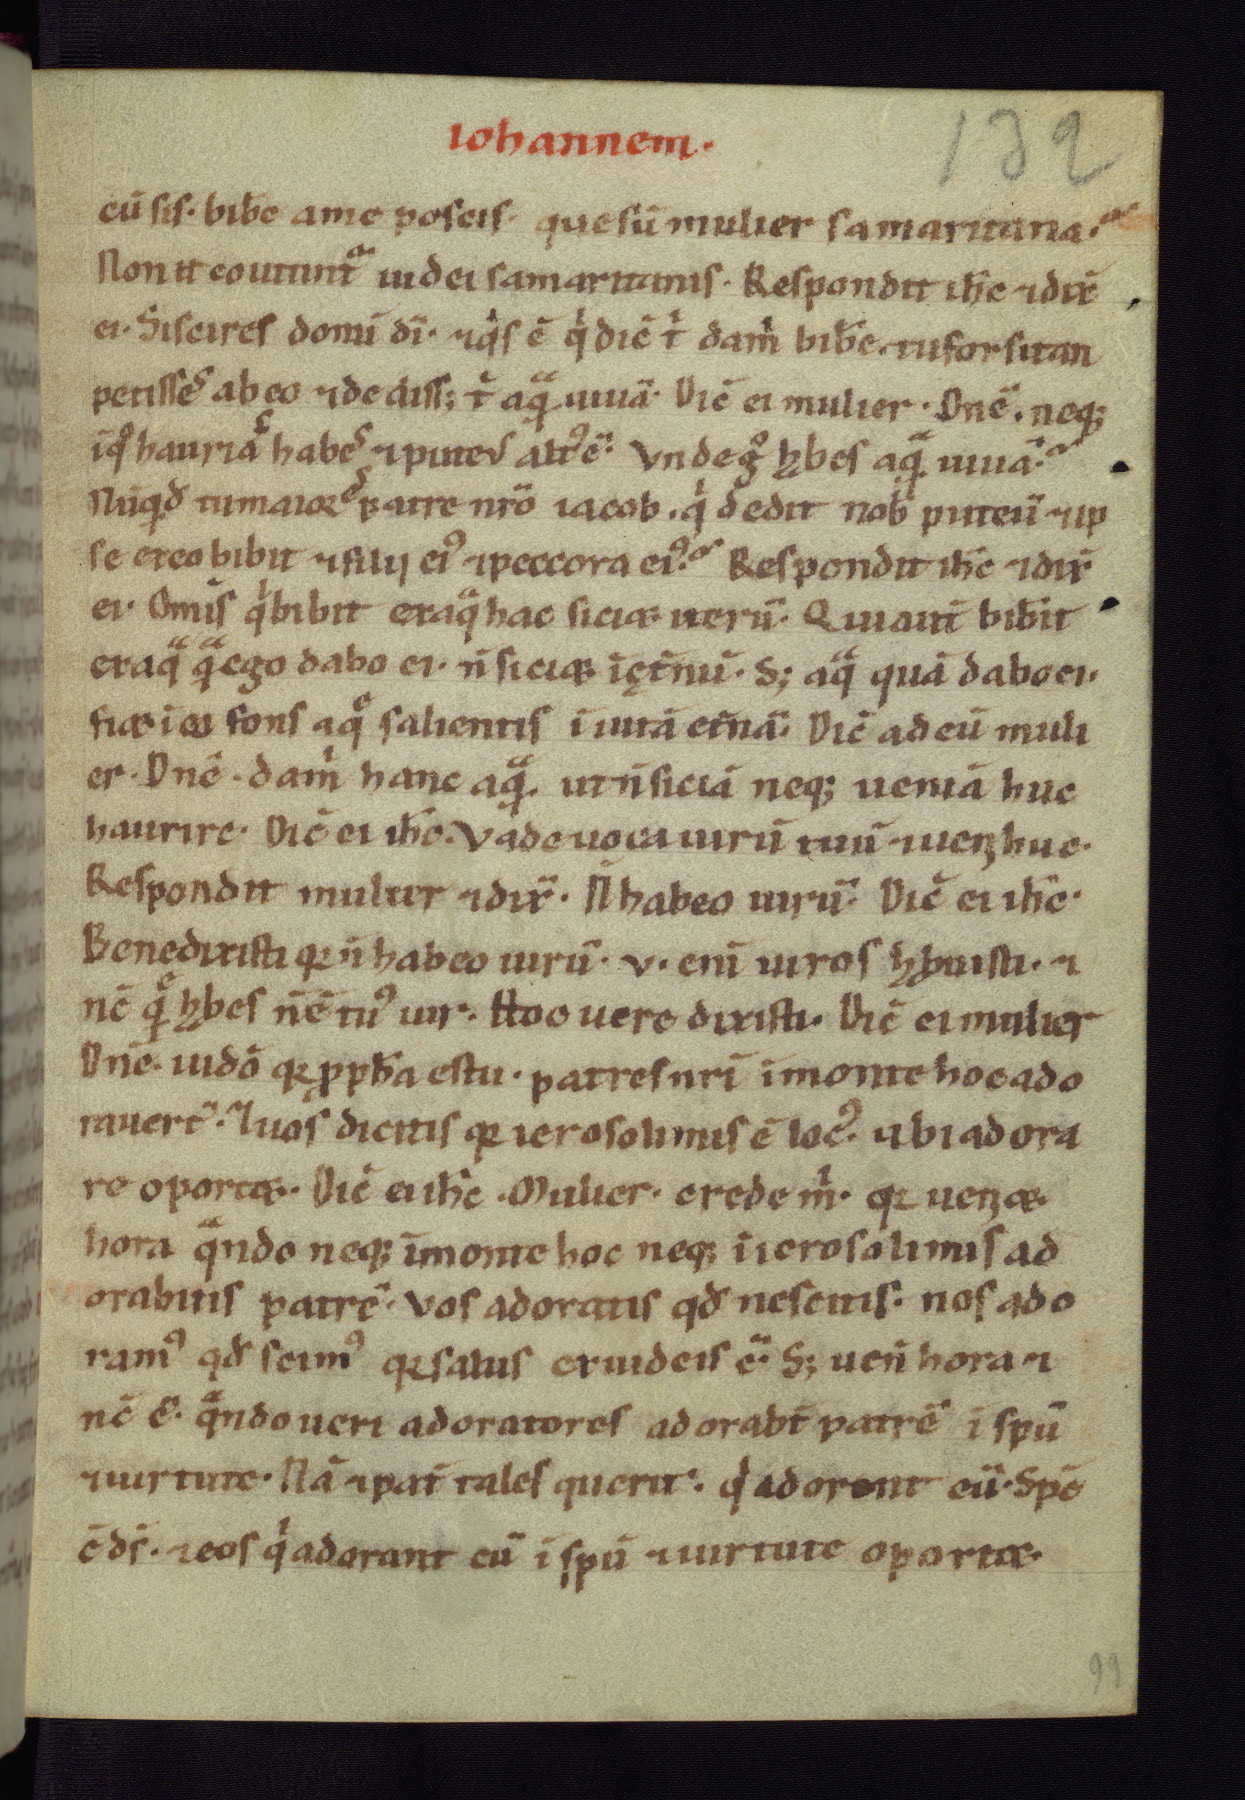 iohannem.
132
cū sis. bibe͛ ame poscis. que sū mulier samaritana.
Non n̄ coutunt᷑ iudei samaritanis. Respondit ih̄c ⁊dix̄
ei. Siscires donū dī. ⁊qͥs ē qͥ dic̄ tͥ damͥ bibe͛. tuforsitan
petisseͥs abeo ⁊dedissꝫ tͥ aqᷓ uiuā. Dic̄ ei mulier. Dn̄e. neqꝫ
īqͦ hauriaͥs habeͥs ⁊puteꝰ altꝰ ē. Vndegͦ hͣbes aqᷓ uiuā.
Nūqͥd tumaioreͥs patre nr̄o iacob. qͥ dedit nob̄ puteū ⁊ip
se exeo bibit ⁊filij eiꝰ ⁊peccora eiꝰ. Respondit ih̄c ⁊dix̄
ei. Om̄is qͥbibit exaqᷓhac siciet iterū. Quiaut̄ bib͛it
exaqᷓ qᷓego dabo ei. n̄ siciet īęt͛nū. Sꝫ aqᷓ quā daboei.
fiet ieo fons aqͤ salientis ī uitā et͛nā. Dic̄ adeū muli
er. Dn̄e. damͥ hanc aqᷓ. ut n̄ siciā neqꝫ ueniā huc
haurire. Dic̄ ei ih̄c. Vade uoca uirū tuū ⁊ueni huc.
Respondit mulier ⁊dix̄. N̄ habeo uirū. Dic̄ ei ih̄c.
Benedixisti qꝛ n̄ habeo uirū. v. eni uiros hͣbuisti. ⁊
nc̄ qͤ hͣbes n̄ē tuꝰ uir. Hoc uere dixisti. Dic̄ ei mulier
Dn̄e. uidō qꝛ ꝓph̄a estu. patres nr̄i īmonte hocado
rauert̄. ⁊uos dicitis qꝛ ierosolimis ē locꝰ. ubi adora
re oportet. Dic̄ ei ih̄c. Mulier. crede mͥ. qꝛ ueniet
hora qᷓndo neqꝫ īmonte hoc neqꝫ īierosolimis ad
orabitis patrē. vos adoratis qd̄ nescitis. nos ado
ramꝰ qd̄ scimꝰ qꝛsalus exiudeis ē. Sꝫ uen̄ hora ⁊
nc̄ ē. qᷓndo ueri adoratores adorab̄t patrē ī spū
⁊uirtute. Nā ⁊pat̄ tales querit. qͥ adorent eū. Spc̄
ē ds̄. ⁊eos qͥadorant eū ī spū ⁊uirtute oportet.
99